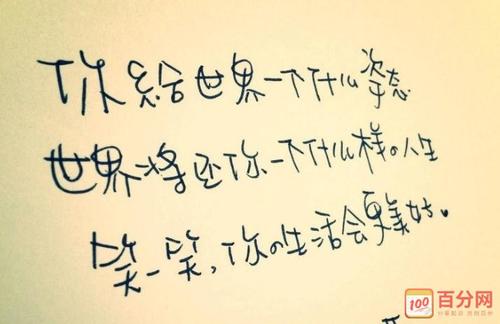 你給世界一个什么姿态
世界将还你一个什么样の人生
笑一笑，你の生活会更美好。
百分网